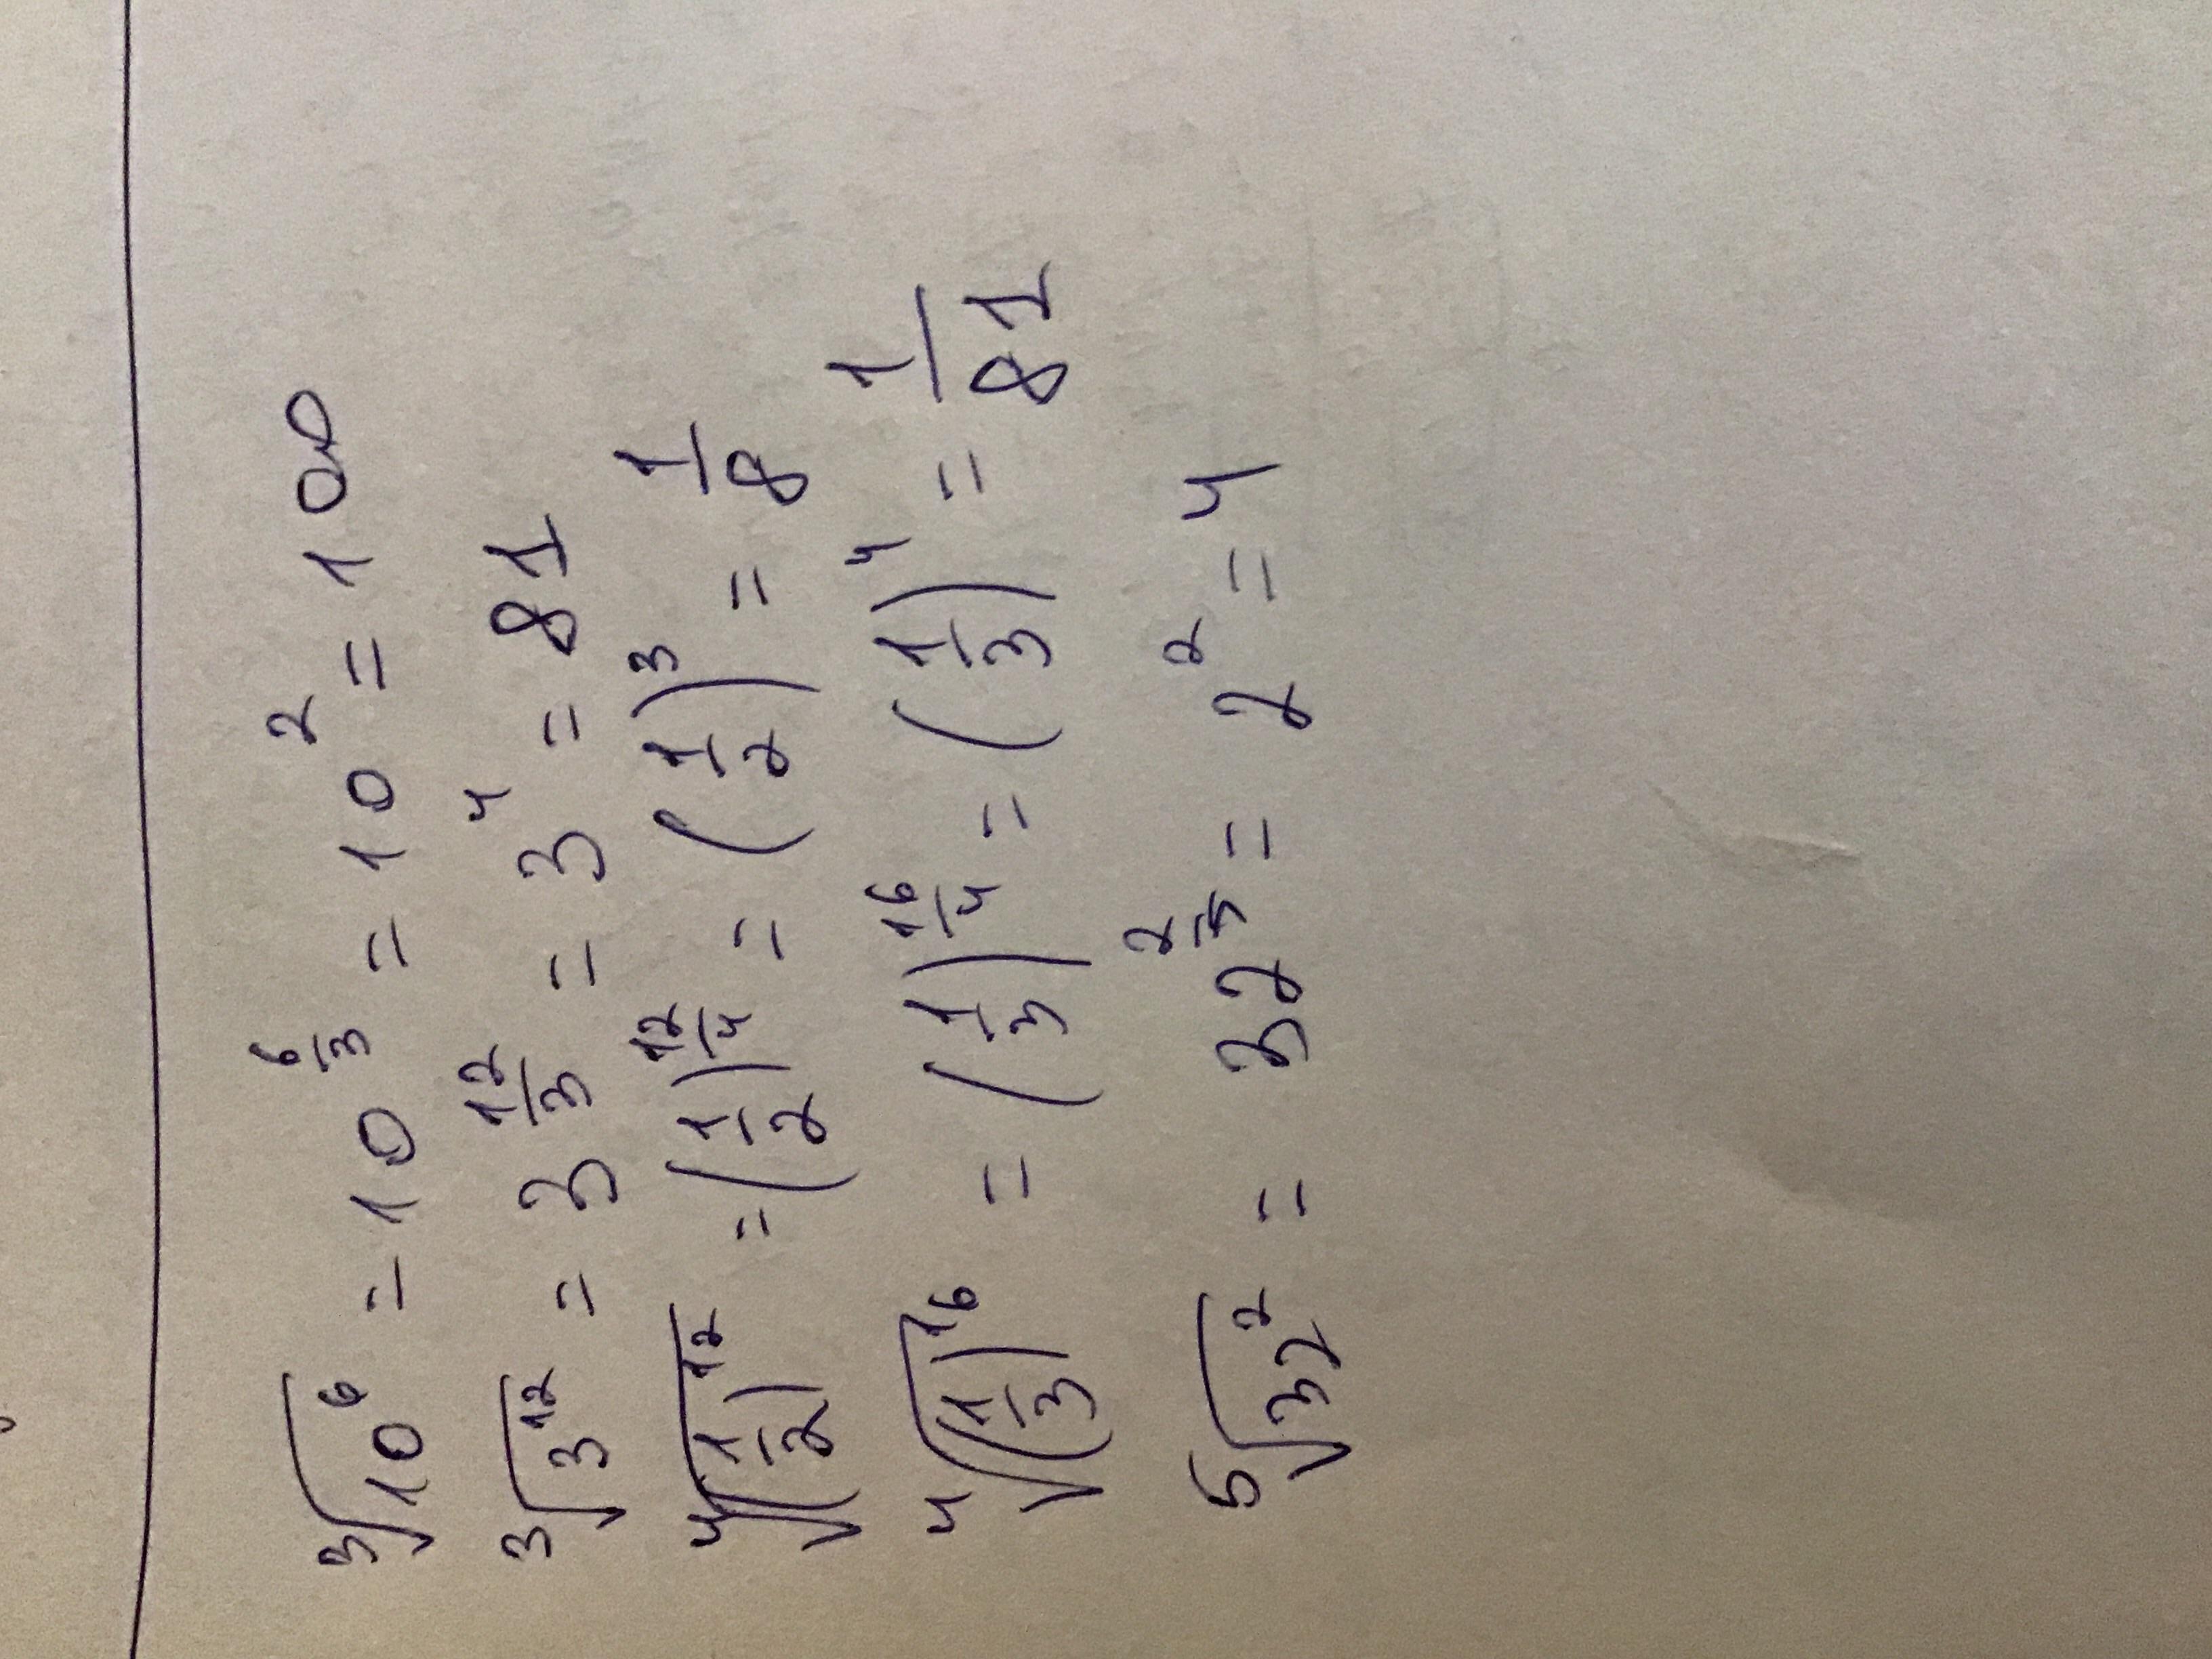 ∛10⁶ = 10^(6/3) = 10² = 100
∛3¹² = 3^(12/3) = 3⁴ = 81
∜(1/2)¹² = (1/2)^(12/4) = (1/2)³ = 1/8
∜(1/3)¹⁶ = (1/3)^(16/4) = (1/3)⁴ = 1/81
⁵√32² = 32^(2/5) = 2² = 4